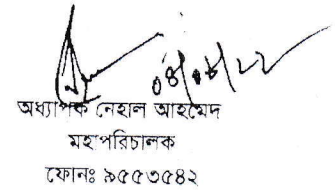 অধ্যাপক নেহাল আহমেদ
মহাপরিচালক
ফোনঃ ৯৫৫৩৫৪২